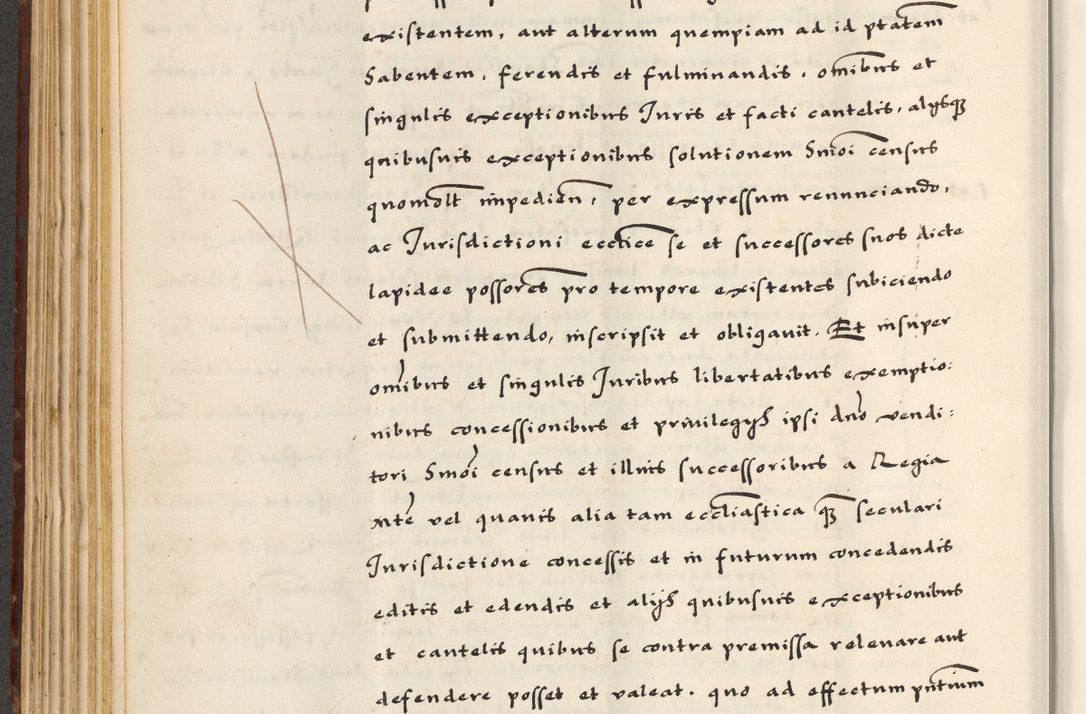 existentem, aut alterum quempiam ad id ptatem
habentem, ferendis et fulminandis, omibus et
singulis exceptionibus Juris et facti cautelis, alijsq3
quibusuis exceptionibus solutionem hmoi census
quomolt impedien, per expressum renunciando,
ac Jurisdictioni ecctice se et successores suos dicte
lapidee possores pro tempore existentes subiciendo
et submittendo, inscripsit et obligauit. Et insuper
omibus et singulis Juribus libertatibus exemptio:
nibus concessionibus et priuilegijs ipsi dno vendi:
tori hmoi census et illius successoribus a Regia
mte vel quauis alia tam eccliastica q3 seculari
Jurisdictione concessis et in futurum concedendis
editis et edendis et alijs quibusuis exceptionibus
et cautelis quibus se contra premissa releuare aut
defendere posset et valeat. quo ad effectum pntium